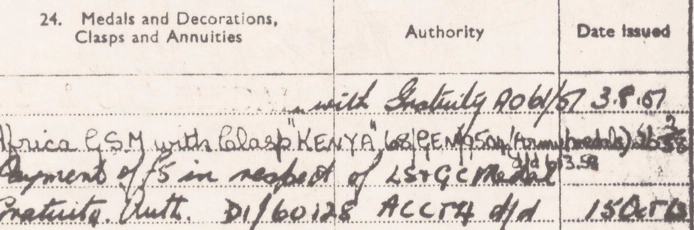 24. Medals and Decorations, Clasps and Annuities
Authority
Date Issued
with Gratuity AO 61/51 3.8.51
Africa GSM with Clasp "KENYA" 68/GEN/ (Army medals)
d/d 6.3.58
Payment of £5 in respect of LS & GC Medal
Gratuity. Auth. D1/60128 ACCT4 d/d 15 Oct